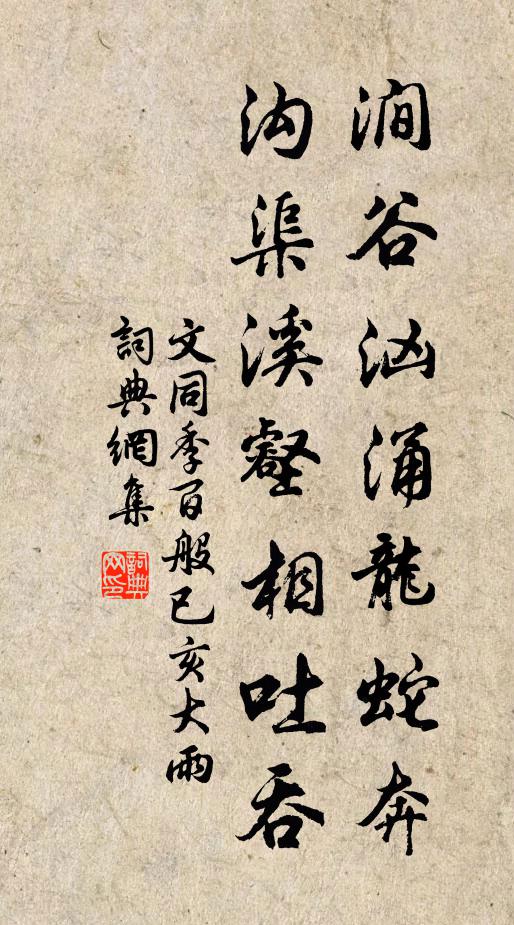 澗谷汹涌龍蛇奔
沟渠溪壑相吐吞
文同季百般已亥大雨
詞典網集
詞典网印